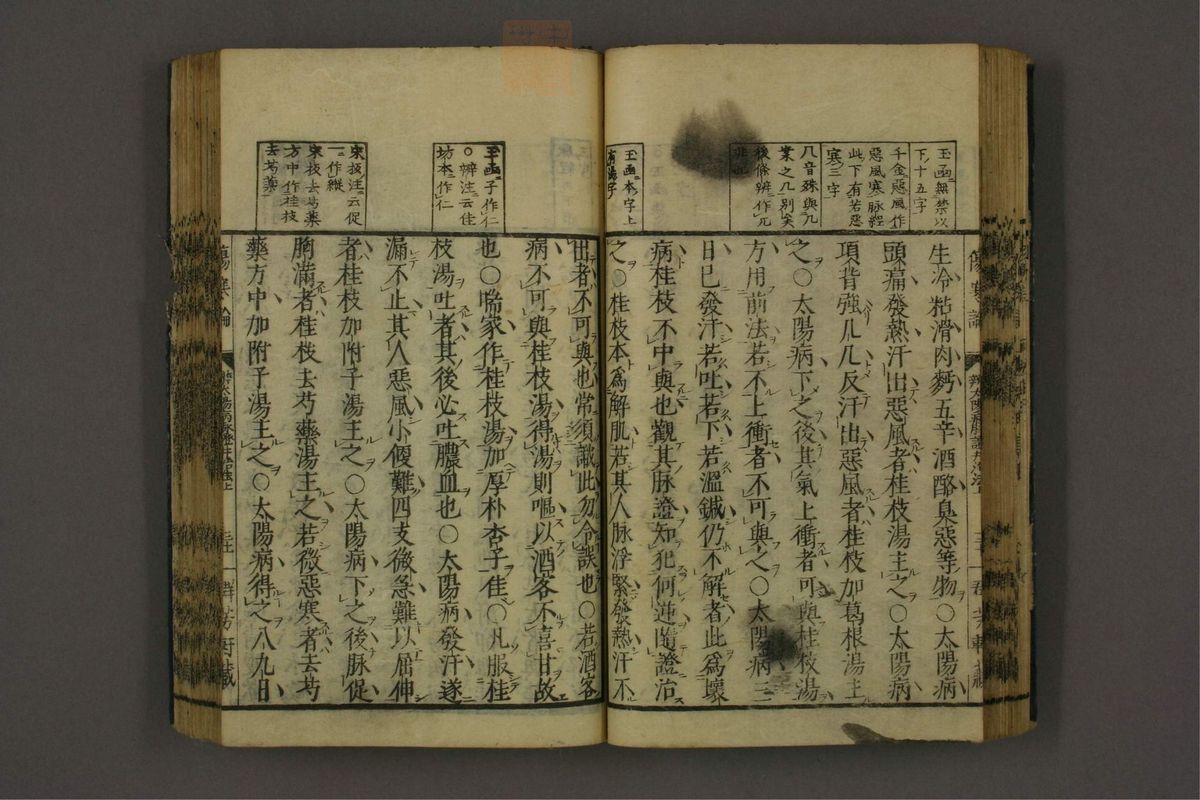 玉函無禁以
下十五字
千金惡風作
惡風寒脉經
此下有若惡
寒三字
几音殊與九
業之几別矣
後條辨作兀
非也
生冷粘滑肉麪五辛酒酪臭惡等物○太陽病
頭痛發熱汗出惡風者桂枝湯主之○太陽病
項背強几几反汗出惡風者桂枝加葛根湯主
之○太陽病下之後其氣上衝者可與桂枝湯
方用前法若不上衝者不可與之○太陽病三
日已發汗若吐若下若溫鍼仍不解者此爲壞
病桂枝不中與也觀其脉證知犯何逆隨證治
之○桂枝本爲解肌若其人脉浮緊發熱汗不
玉函本字上
出者不可與也常須識此勿令誤也○若酒客
病不可與桂枝湯得湯則嘔以酒客不喜甘故
也○喘家作桂枝湯加厚朴杏子佳○凡服桂
枝湯吐者其後必吐膿血也○太陽病發汗遂
漏不止其人惡風小便難四支微急難以屈伸
者桂枝加附子湯主之○太陽病下之後脉促
胸滿者桂枝去芍藥湯主之若微惡寒者去芍
藥方中加附子湯主之○太陽病得之八九日
玉函子作仁
○辨注云佳
坊本作仁
宋板注云促
一作縱
宋板去芍藥
方中作桂枝
去芍藥